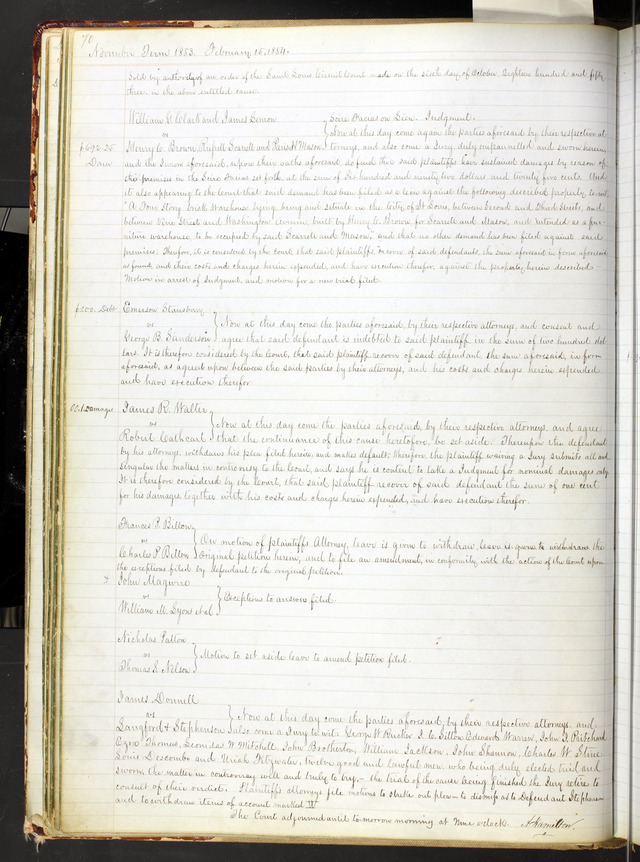 70
November Term 1853. February 15, 1854.
Sold by authority of an order of the Saint Louis Circuit Court made on the sixth day of October Eighteen hundred and fifty
three, in the above entitled cause.
William G. Clark and James Lemon } Scire Facias on Lien. Judgment.
vs } Now at this day come again the parties aforesaid by their respective at-
$692.25 Henry C. Brown, Russell Scarrett and Mason torneys, and also come a Jury, duly empannelled and sworn herein,
Dam and the Jurors aforesaid, upon their oaths aforesaid do find the said plaintiffs have sustained damages by reason of
the premises in the Scire Facias set forth, at the sum of Six hundred and ninety two dollars and twenty five cents. And
it also appearing to the Court that said demand has been filed as a lien against the following described property, to wit:
"A Four Story brick Warehouse lying, being and situate in the City of St Louis, between Second and Third Streets, and
between Vine Street and Washington Avenue, built by Henry C. Brown for Scarrett and Mason, and intended as a fur-
niture warehouse, to be occupied by said Scarrett and Mason," and that no other demand has been filed against said
premises. Therefore, it is considered by the Court that said plaintiffs recover of said defendants, the sum aforesaid in form aforesaid
as found, and their costs and charges herein expended, and have execution therefor, against the property herein described.
Motion in arrest of Judgment, and motion for a new trial filed.
$200. Debt Emerson Stansbury
vs } Now at this day come the parties aforesaid, by their respective attorneys, and consent and
George B. Sanderson agree that said defendant is indebted to said plaintiff in the sum of two hundred dol
lars. It is therefore considered by the Court, that said plaintiff recover of said defendant the sum aforesaid, in form
aforesaid, as agreed upon between the said parties by their attorneys, and his costs and charges herein expended
and have execution therefor.
00.1 Damages James R. Walter
vs } Now at this day come the parties aforesaid, by their respective attorneys, and agree
Robert Cathcart that the continuance of this cause heretofore, be set aside. Thereupon the defendant
by his attorneys, withdraws his plea filed herein, and makes default; therefore the plaintiff waiving a Jury submits all and
singular the matters in controversy to the Court, and says he is content to take a Judgment for nominal damages only.
It is therefore considered by the Court, that said plaintiff recover of said defendant the sum of one cent
for his damages, together with his costs and charges herein expended, and have execution therefor.
Frances P. Billon
vs } On motion of plaintiffs Attorney, leave is given to withdraw, leave is given to withdraw the
Charles P. Billon original petition herein, and to file an amendment, in conformity with the action of the Court upon
the exceptions filed by defendant to the original petition.
John Maguire
vs } Exceptions to answer filed.
William M. Lyons et al
Nicholas Patton
vs } Motion to set aside leave to amend petition filed.
Thomas S. Nelson
James Donnell
vs } Now at this day come the parties aforesaid, by their respective attorneys, and
Langford & Stephenson also come a Jury to wit: George W Rucker, Sitton, Edward Warren, John Pritchard
Ezra Thomas, Leonidas W Mitchell, John Brotherton, William Jackson, John Shannon, Charles W. Stine
Louis Descombs and Uriah Fitzwater, twelve good and lawful men, who being duly elected tried and
sworn the matter in controversy well and truly to try, – the trial of the cause being finished the Jury retire to
consult of their verdict. Plaintiffs attorneys file motions to strike out plea – to dismiss as to Defendant Stephenson
and to withdraw items of account marked
The Court adjourned until to-morrow morning at Nine o'clock. A. Hamilton